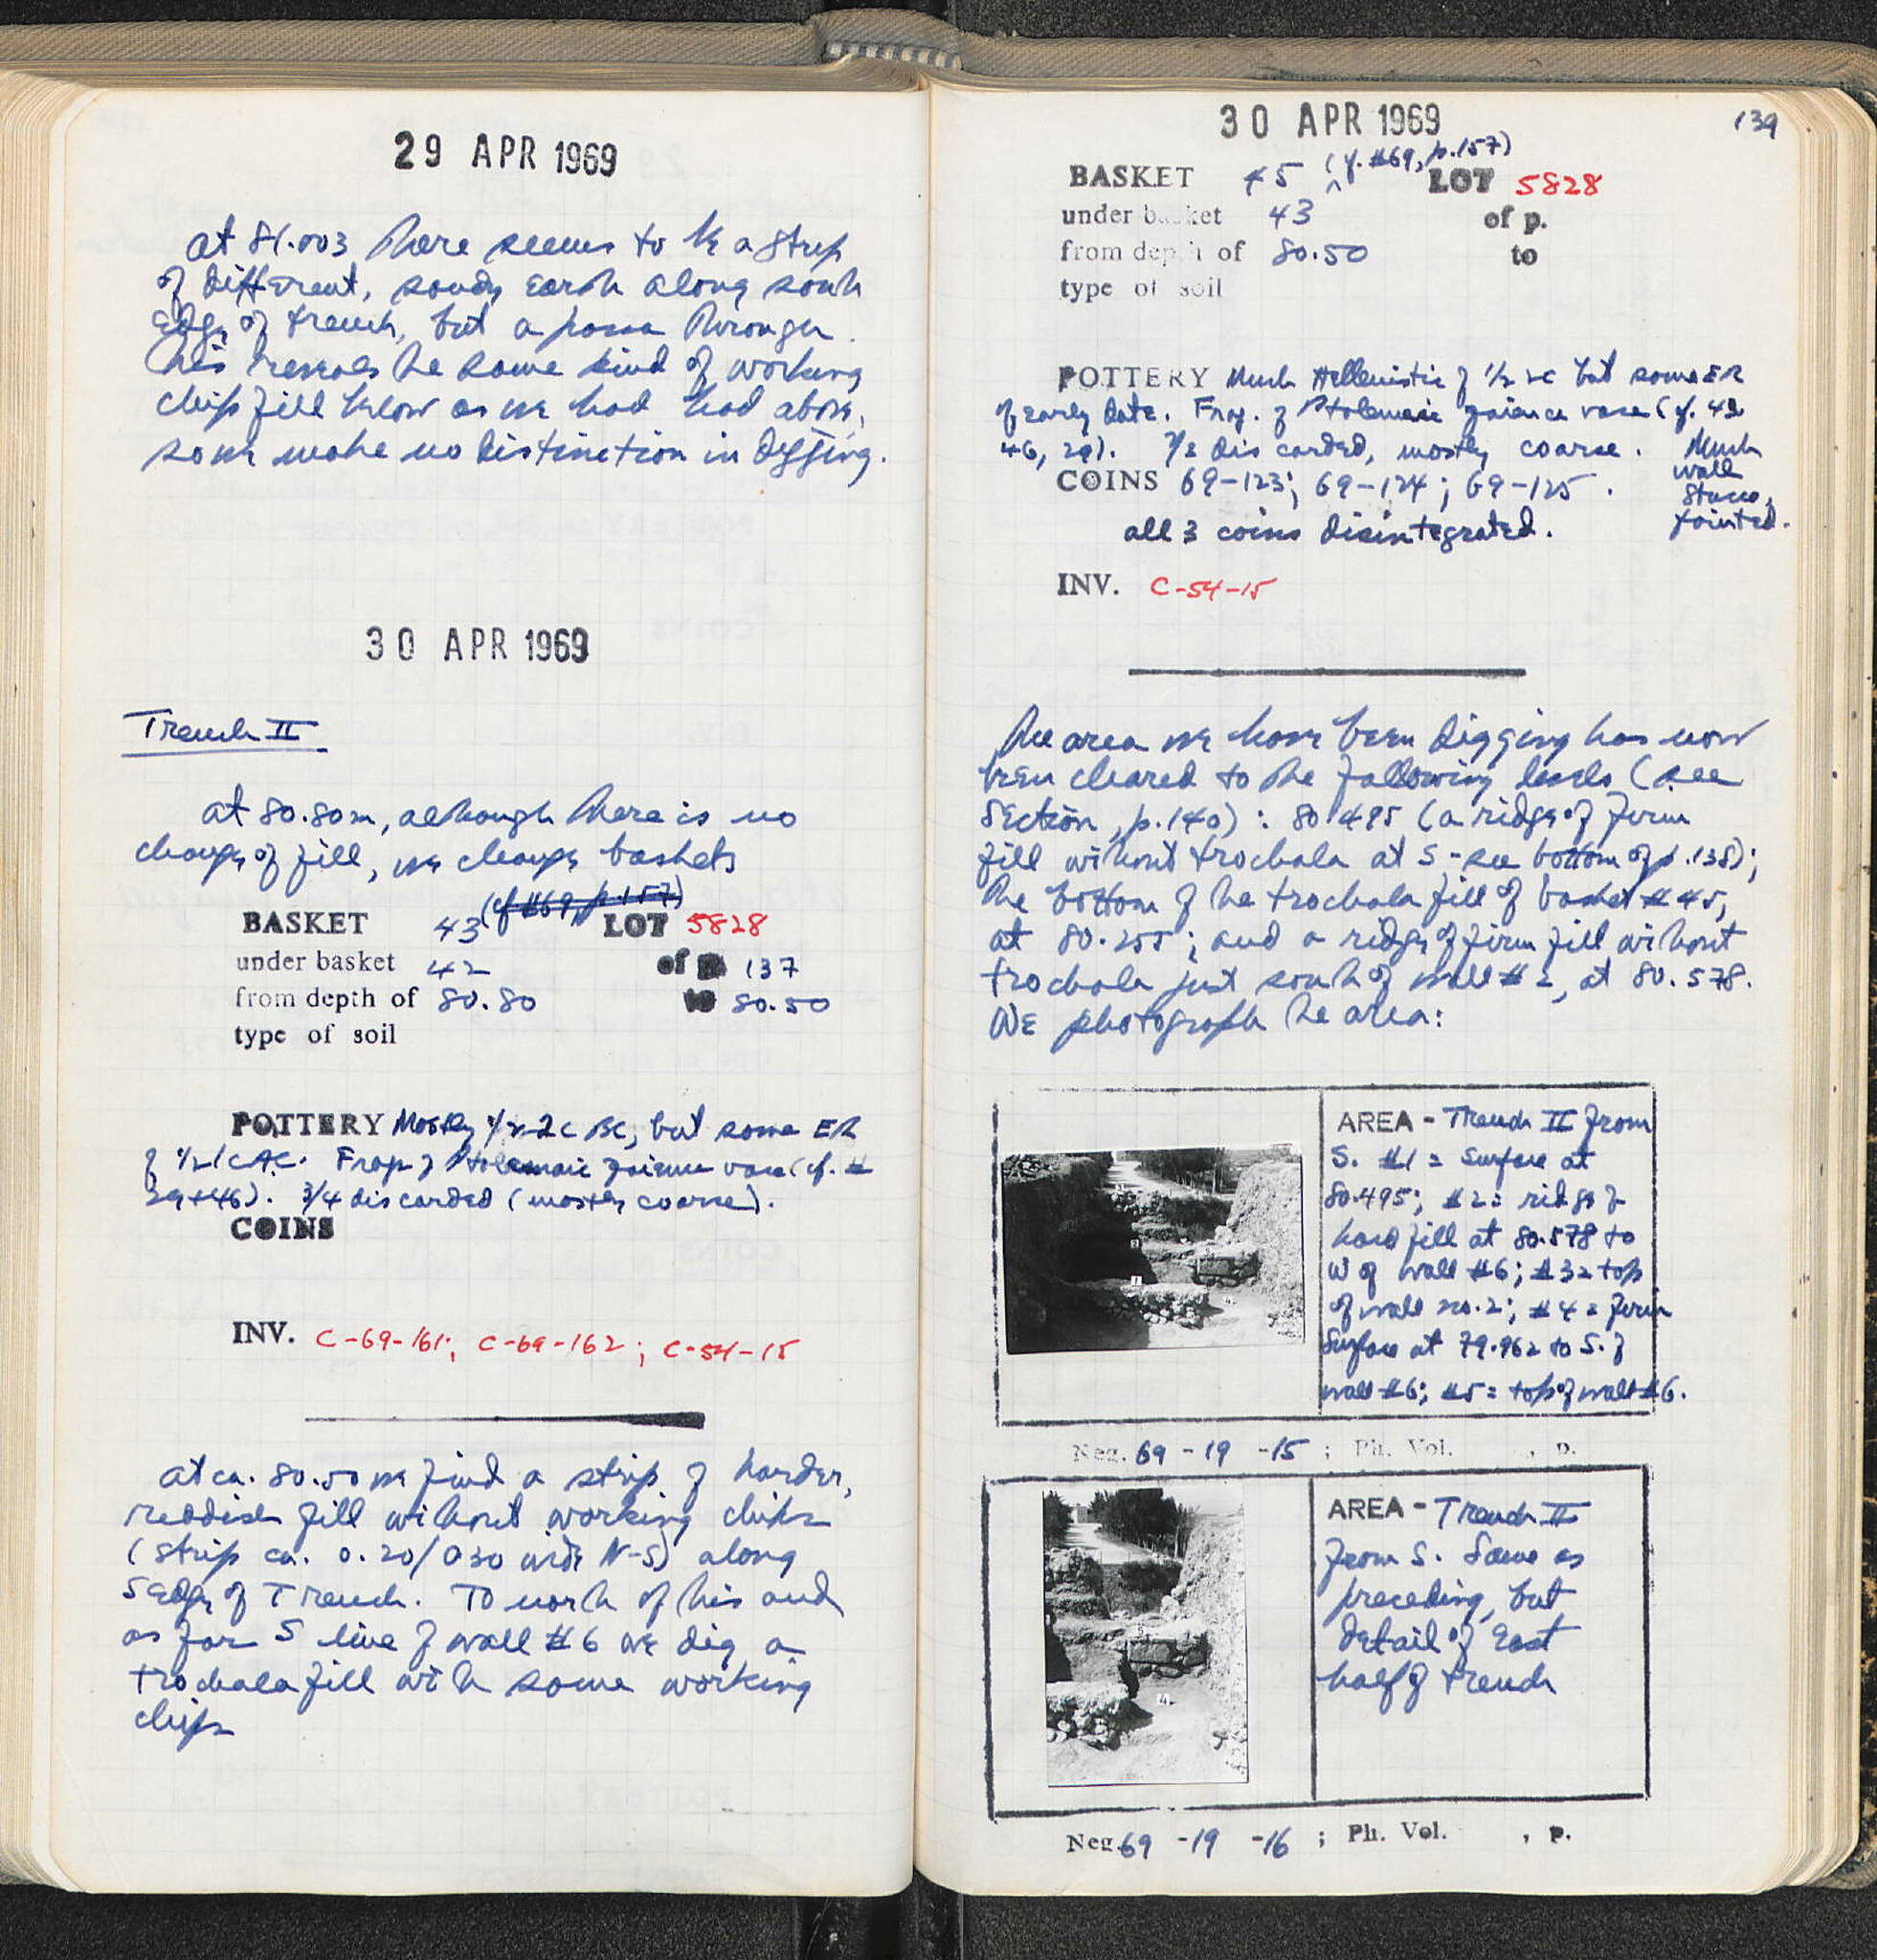 29 APR 1969
at 81.003 there seems to be a strip
of different, sandy earth along south
edge of trench, but a passa through
this reveals the same kind of working
chip fill below as we had had above,
so we make no distinction in digging.
30 APR 1969
Trench II
at 80.80m, although there is no
change of fill, we change baskets
(cf #69, p.157)
BASKET 43 LOT 5828
under basket 42 of p 137
from depth of 80.80 to 80.50
type of soil
POTTERY Mostly 1/2 2c BC, but some ER
of 1/2 1c AC. Frag of Ptolemaic faience vase (cf. #
29+46). 3/4 discarded (mostly coarse).
COINS
INV. C-69-161; C-69-162; C-54-15
at ca. 80.50 we find a strip of harder,
reddish fill without working chips
(strip ca. 0.20/030 wide N-S) along
S edge of Trench. To north of this and
as far S line of wall #6 we dig a
trochala fill with some working
chips
139
30 APR 1969
(cf. #69, p.157)
BASKET 45 LOT 5828
under basket 43 of p.
from depth of 80.50 to
type of soil
POTTERY Much Hellenistic of 1/2 2c but some ER
of early date. Frag. of Ptolemaic faience vase (cf. 42
46, 29). 2/3 discarded, mostly coarse. Much
wall
stucco,
painted.
COINS 69-123; 69-124; 69-125.
all 3 coins disintegrated.
INV. C-54-15
The area we have been digging has now
been cleared to the following levels (see
Section, p.140): 80.495 (a ridge of firm
fill without trochala at S - see bottom of p.138);
the bottom of the trochala fill of basket #45,
at 80.255; and a ridge of firm fill without
trochala just south of wall #2, at 80.578.
We photograph the area:
AREA - Trench II from
S. #1 = surface at
80.495; #2 = ridge of
hard fill at 80.578 to
W of wall #6; #3 = top
of wall no.2; #4 = firm
surface at 79.962 to S. of
wall #6; #5 = top of wall #6.
Neg. 69 -19 -15 ; Ph. Vol. , p.
AREA - Trench II
from S. Same as
preceding, but
detail of East
half of trench
4
Neg. 69 -19 -16 ; Ph. Vol. , p.